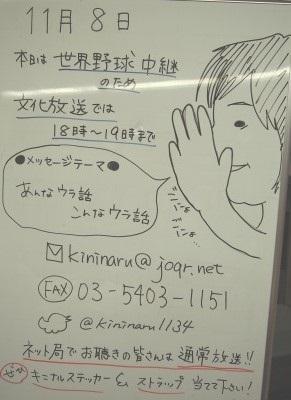 11月8日
本日は 世界野球中継
のため
文化放送では
18時〜19時まで
●メッセージテーマ●
あんなウラ話
こんなウラ話
kininaru@joqr.net
FAX 03-5403-1151
@kininaru1134
ネット局でお聴きの皆さんは 通常放送!!
ぜひ キニナルステッカー& ストラップ 当てて下さい!